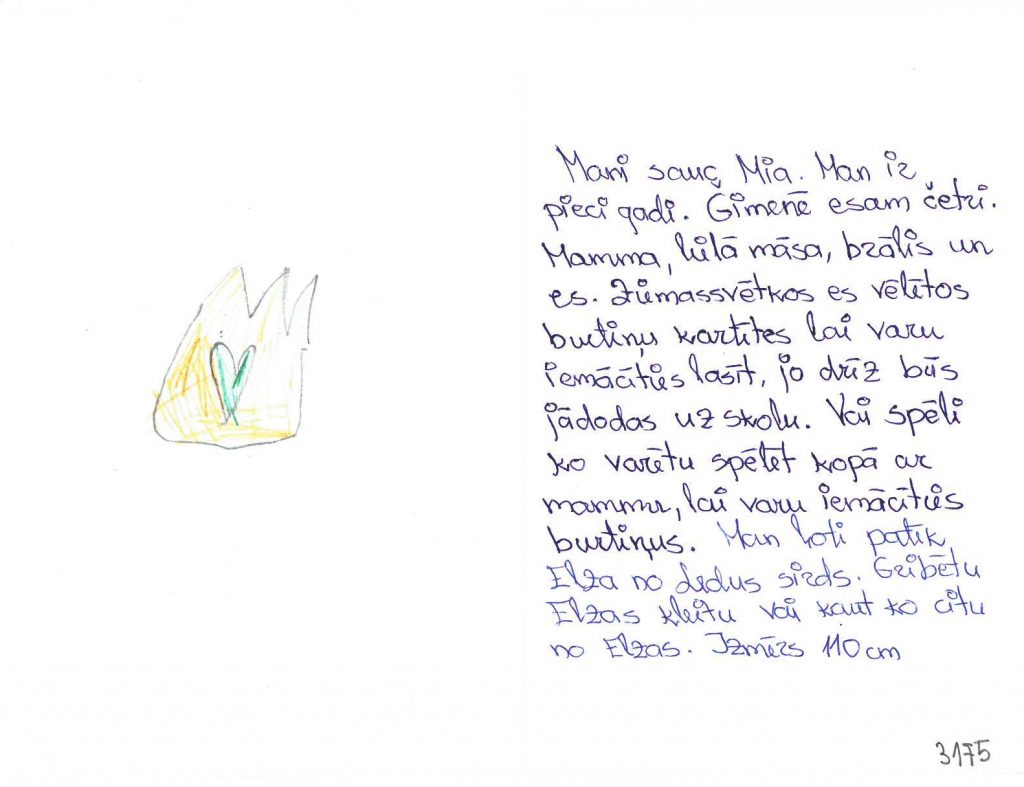 Mani sauç Mia. Man ir
pieci gadi. Ģimenē esam četri.
Mamma, lielā māsa, brālis un
es. Ziemassvētkos es vēlētos
burtiņu kartītes lai varu
iemācīties lasīt, jo drīz būs
jādodas uz skolu. Vai spēli
ko varētu spēlēt kopā ar
mammu, lai varu iemācīties
burtiņus. Man ļoti patīk
Elza no Ledus sirds. Gribētu
Elzas kleitu vai kaut ko citu
no Elzas. Izmērs 110 cm
3175